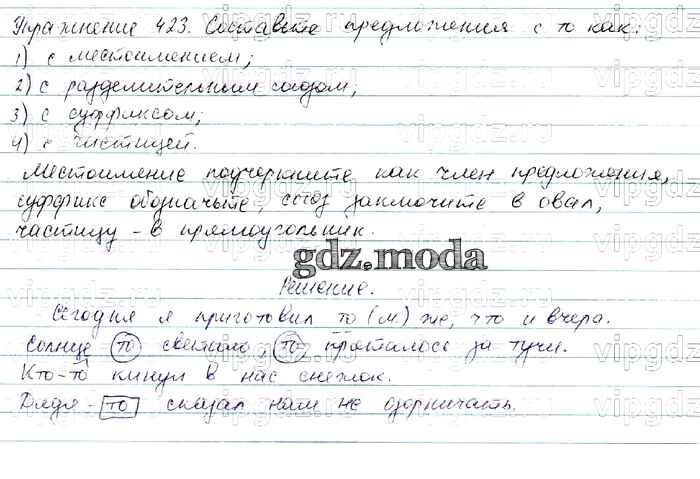 Упражнение 423. Составьте предложения с то как:
1) с местоимением;
2) с разделительным союзом;
3) с суффиксом;
4) с частицей.
Местоимение подчеркните как член предложения,
суффикс обозначьте, союз заключите в овал,
частицу - в прямоугольник.
gdz.moda
Решение.
Сегодня я приготовил то (м) же, что и вчера.
Солнце то светило, то пряталось за тучи.
Кто-то кинул в нас снежок.
Дядя-то сказал нам не озорничать.